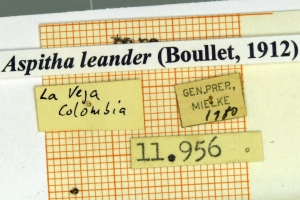 Aspitha leander (Boullet, 1912)
La Veja
Colombia
GEN. PREP.,
MIELKE
1980
11.956